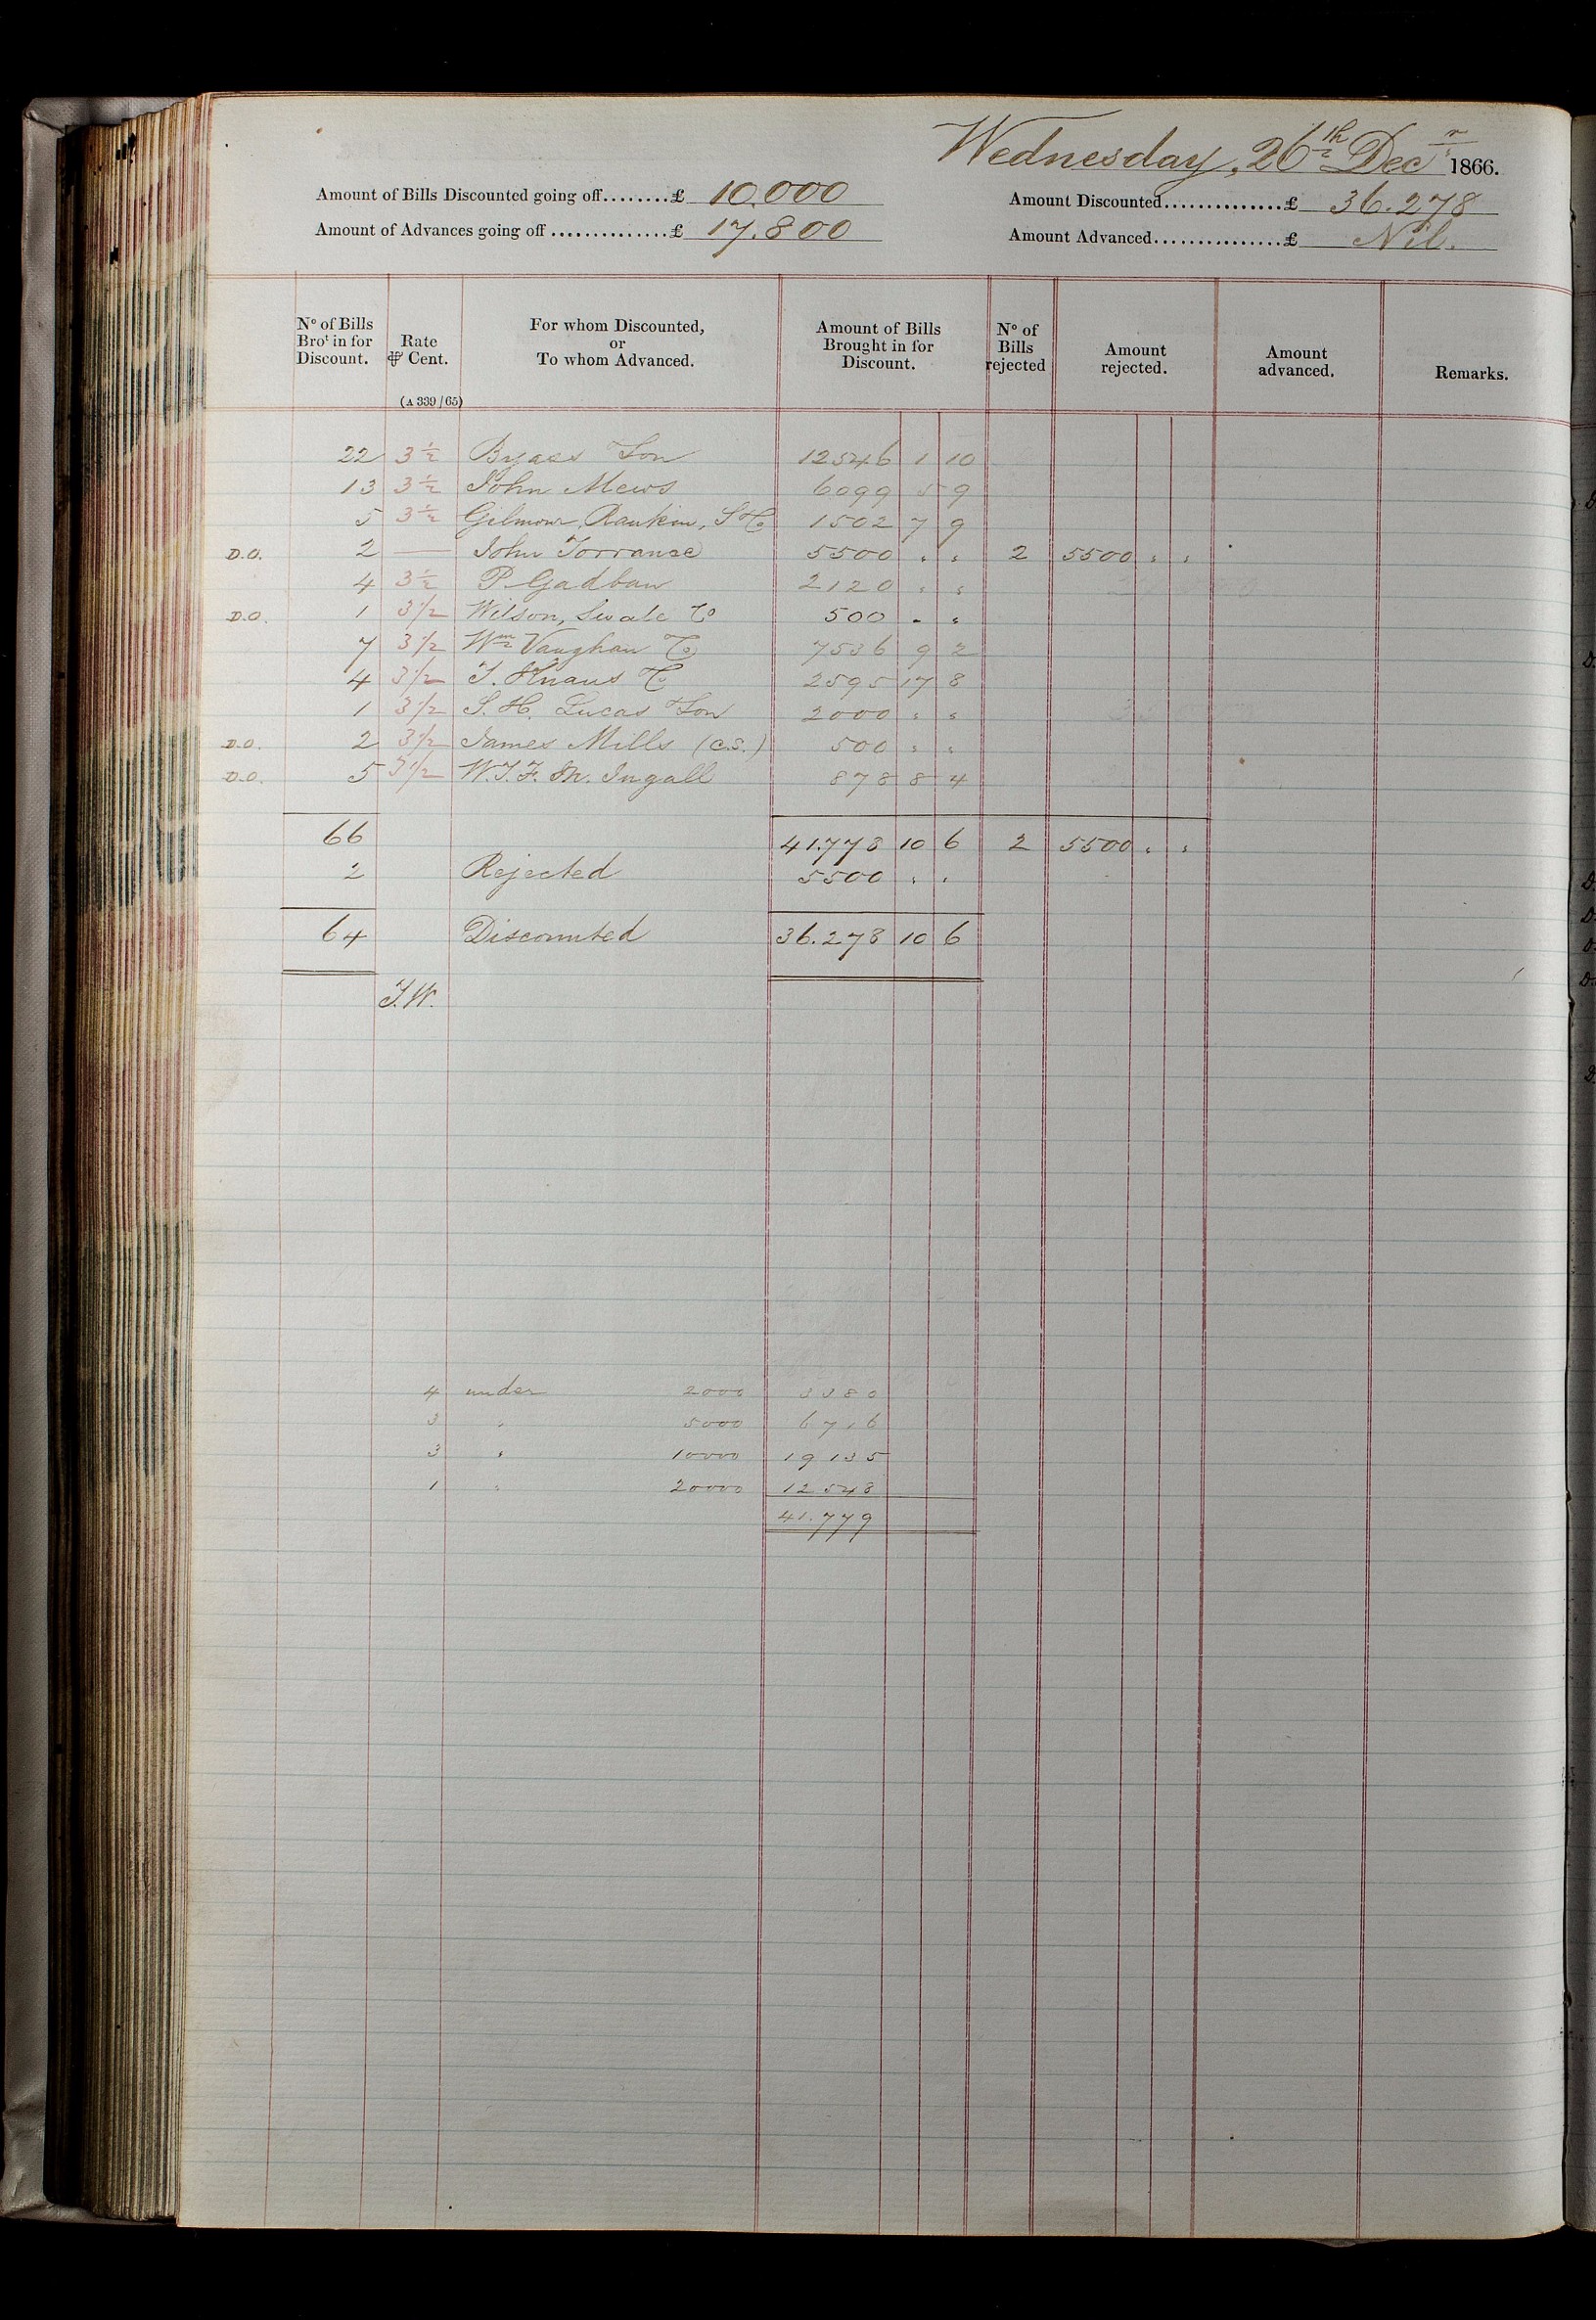 Wednesday, 26th Decr 1866.
Amount of Bills Discounted going off........£ 10,000
Amount Discounted..............£ 36.278
Amount of Advances going off..............£ 17.800
Amount Advanced...............£ Nil.
No of Bills Brot in for Discount. Rate ⅌ Cent. (A 339/65) For whom Discounted, or To whom Advanced. Amount of Bills Brought in for Discount. No of Bills rejected Amount rejected. Amount advanced. Remarks.
22 3½ Byass & Son 12546 1 10
13 3½ John Mews 6099 5 9
5 3½ Gilmour, Rankin, S & Co 1502 7 9
D.O. 2 — John Torrance 5500 " " 2 5500 " "
4 3½ P. Gadban 2120 " "
D.O. 1 3½ Wilson, Swale & Co 500 " "
7 3½ Wm Vaughan & Co 7536 9 2
4 3½ T. Knaus & Co 2595 17 8
1 3½ S. H. Lucas & Son 2000 " "
D.O. 2 3½ James Mills (C.S.) 500 " "
D.O. 5 3½ W.T.F.M. Ingall 878 8 4
66 41.778 10 6 2 5500 " "
2 Rejected 5500 " "
64 Discounted 36.278 10 6
T.W.
4 under 2000 3380
3 " 5000 6716
3 " 10000 19135
1 " 20000 12548
41.779